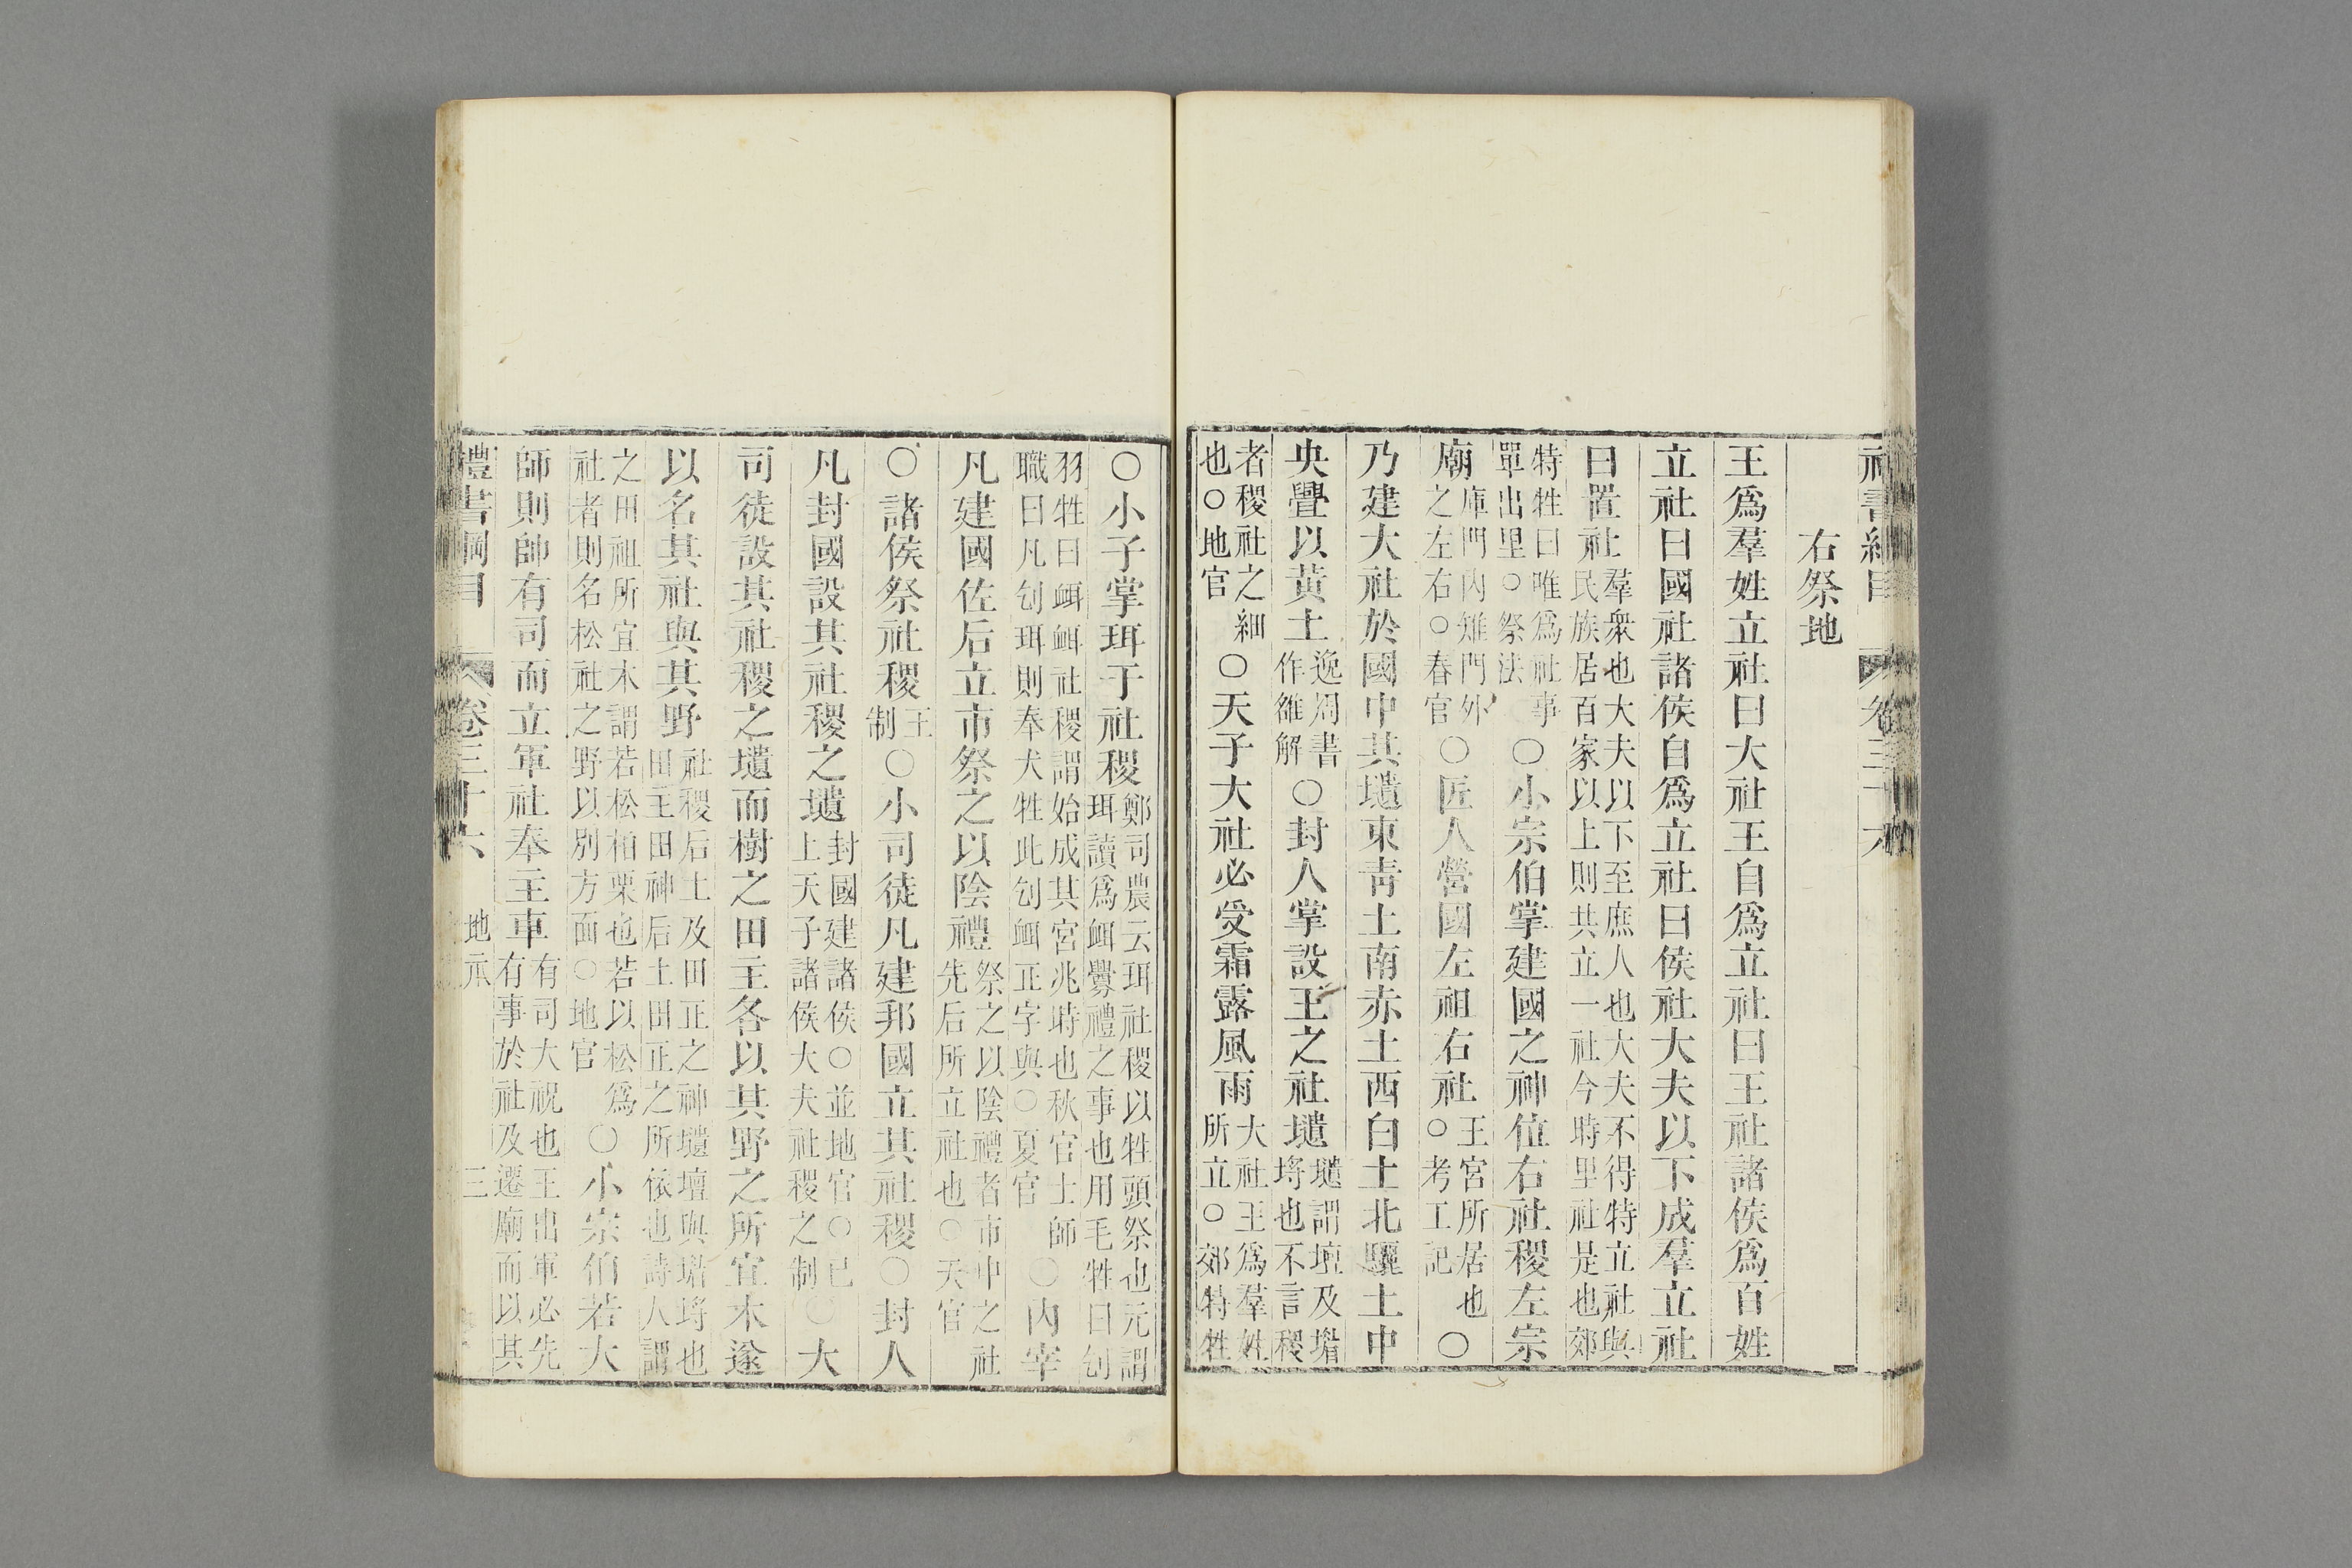 右祭地
王爲羣姓立社曰大社王自爲立社曰王社諸侯爲百姓
立社曰國社諸侯自爲立社曰侯社大夫以下成羣立社
曰置社羣衆也大夫以下至庶人也大夫不得特立社與民族居百家以上則共立一社今時里社是也郊
特牲曰唯爲社事單出里○祭法○小宗伯掌建國之神位右社稷左宗
廟庫門內雉門外之左右○春官○匠人營國左祖右社王宮所居也○考工記○
乃建大社於國中其壝東靑土南赤土西白土北驪土中
央舋以黃土逸周書作雒解○封人掌設王之社壝壝謂壇及堳埒也不言稷
者稷社之細也○地官○天子大社必受霜露風雨大社王爲羣姓所立○郊特牲
○小子掌珥于社稷鄭司農云珥社稷以牲頭祭也元謂珥讀爲衈釁禮之事也用毛牲曰刉
羽牲曰衈衈社稷謂始成其宮兆時也秋官士師職曰凡刉珥則奉犬牲此刉衈正字與○夏官○內宰
凡建國佐后立市祭之以陰禮祭之以陰禮者市中之社先后所立社也○天官
○諸侯祭社稷王制○小司徒凡建邦國立其社稷○封人
凡封國設其社稷之壝封國建諸侯○並地官○已上天子諸侯大夫社稷之制○大
司徒設其社稷之壝而樹之田主各以其野之所宜木遂
以名其社與其野社稷后土及田正之神壝壇與堳埒也田主田神后土田正之所依也詩人謂
之田祖所宜木謂若松柏栗也若以松爲社者則名松社之野以別方面○地官○小宗伯若大
師則帥有司而立軍社奉主車有司大祝也王出軍必先有事於社及遷廟而以其
禮書綱目 卷三十六 地示 三